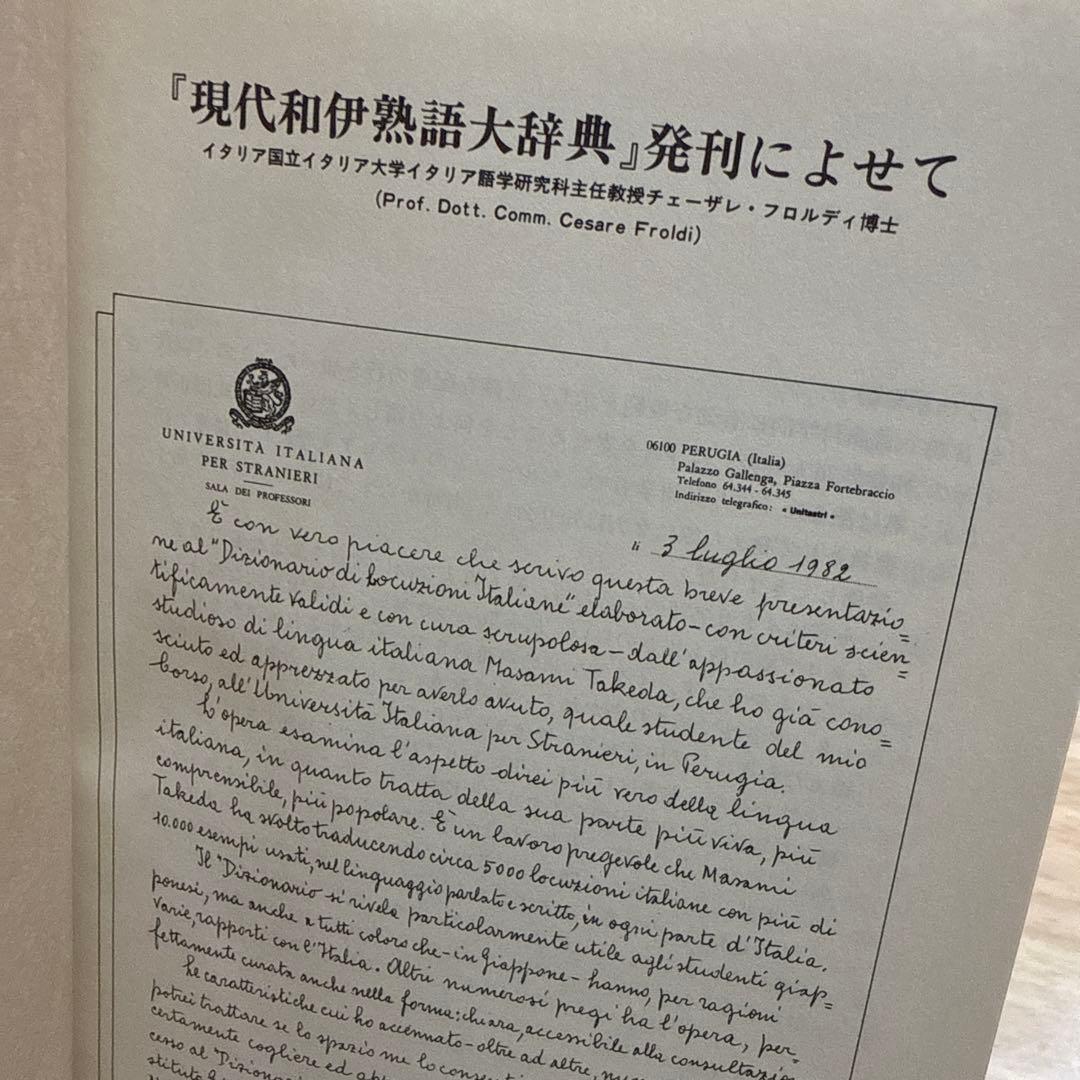 『現代和伊熟語大辞典』発刊によせて
イタリア国立イタリア大学イタリア語学研究科主任教授チェーザレ・フロルディ博士
(Prof. Dott. Comm. Cesare Froldi)
UNIVERSITÀ ITALIANA
PER STRANIERI
SALA DEI PROFESSORI
06100 PERUGIA (Italia)
Palazzo Gallenga, Piazza Fortebraccio
Telefono 64.344 - 64.345
Indirizzo telegrafico: « Unitastri »
li 3 luglio 1982
È con vero piacere che scrivo questa breve presentazio=
ne al "Dizionario di Locuzioni Italiane" elaborato - con criteri scien=
tificamente validi e con cura scrupolosa - dall'appassionato
studioso di lingua italiana Masami Takeda, che ho già cono=
sciuto ed apprezzato per averlo avuto, quale studente del mio
borso, all'Università Italiana per Stranieri, in Perugia.
L'opera esamina l'aspetto direi più vero della lingua
italiana, in quanto tratta della sua parte più viva, più
comprensibile, più popolare. È un lavoro pregevole che Masami
Takeda ha svolto traducendo circa 5000 locuzioni italiane con più di
10.000 esempi usati, nel linguaggio parlato e scritto, in ogni parte d'Italia.
Il "Dizionario si rivela particolarmente utile agli studenti giap=
ponesi, ma anche a tutti coloro che - in Giappone - hanno, per ragioni
varie, rapporti con l'Italia. Altri numerosi pregi ha l'opera, per=
fettamente curata anche nella forma: chiara, accessibile alla consultazio
Le caratteristiche cui ho accennato - oltre ad altre,
potrei trattare se lo spazio me lo
certamente cogliere ed
cesso al "Dizion